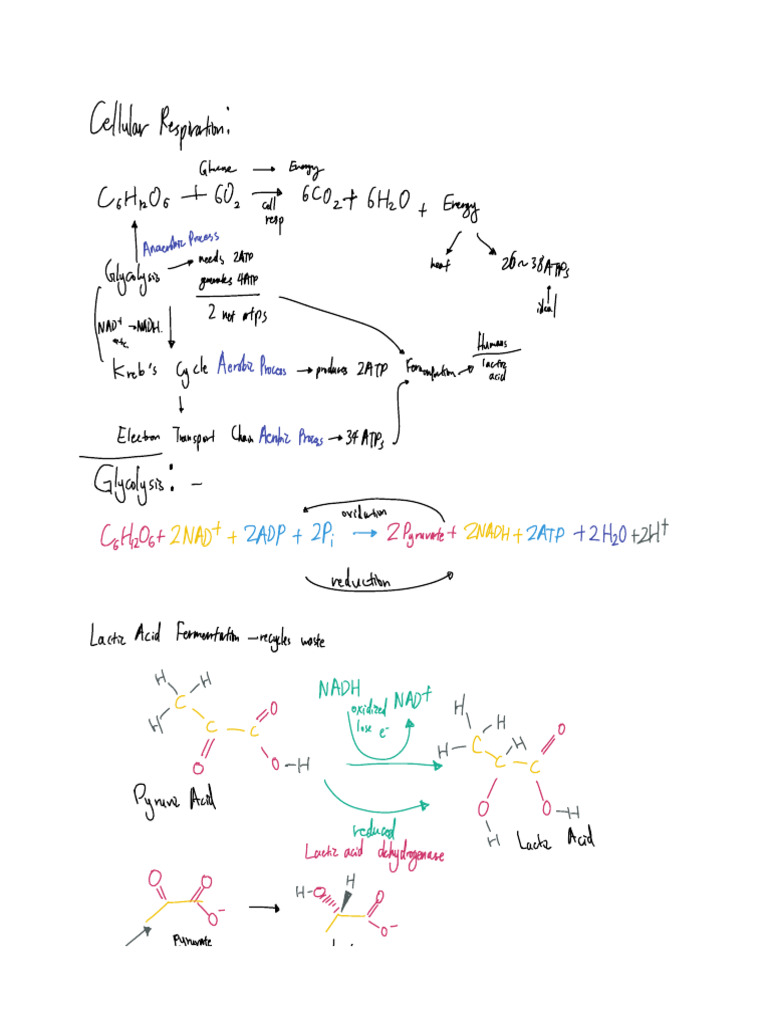 Cellular Respiration:
Glucose → Energy
C₆H₁₂O₆ + 6O₂ → 6CO₂ + 6H₂O + Energy
cell
resp
Anaerobic Process
Glycolysis → needs 2ATP
generates 4ATP
2 net atps
heat
26~38 ATPs
ideal
NAD⁺ → NADH.
Kreb's Cycle Aerobic Process → produces 2ATP
Fermentation →
Humans
lactic
acid
Electron Transport Chain Aerobic Process → 34 ATPs
Glycolysis: –
oxidation
C₆H₁₂O₆ + 2NAD⁺ + 2ADP + 2Pᵢ → 2 Pyruvate + 2NADH + 2ATP + 2H₂O + 2H⁺
reduction
Lactic Acid Fermentation – recycles waste
H H
H C O
C C
O O – H
Pyruvic Acid
NADH NAD⁺
oxidized
lose e⁻
reduced
Lactic acid dehydrogenase
H H O
H – C H
C C
O O – H
H
Lactic Acid
O O
O⁻
Pyruvate
→
H
H – O O
O⁻